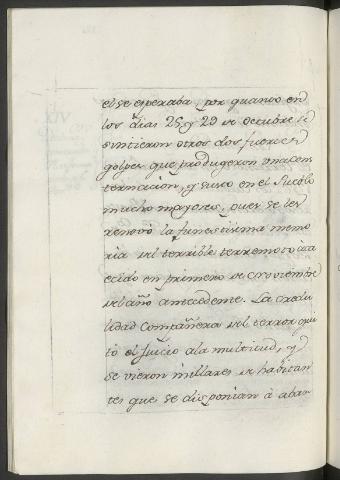 el se esperaba, por quanto en
los dias 25 y 29 de Octubre se
sintieron otros dos fuertes
golpes que produgeron una con
ternacion, y susto en el Pueblo
mucho mayores, pues se les
renovó la funestisima memo
ria del terrible terremoto aca
ecido en primero de Noviembre
del año antecedente. La credu
lidad compañera del terror qui
tó el juicio a la multitud, y
se vieron millares de habitan
tes que se disponian à aban